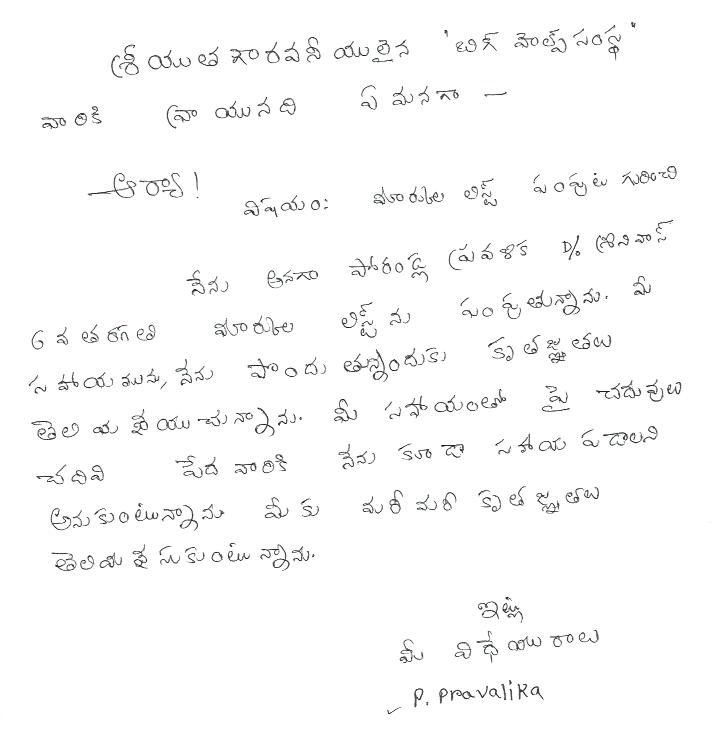 శ్రీయుత గౌరవనీయులైన 'బిగ్ హెల్ప్ సంస్థ'
వారికి వ్రాయునది ఏమనగా —
ఆర్యా!
విషయం: మార్కుల లిస్ట్ పంపుట గురించి
నేను అనగా పోరండ్ల ప్రవళిక D/o శ్రీనివాస్
6 వ తరగతి మార్కుల లిస్ట్ ను పంపుతున్నాను. మీ
సహాయమును, నేను పొందుతున్నందుకు కృతజ్ఞతలు
తెలియజేయుచున్నాను. మీ సహాయంతో పై చదువులు
చదివి పేదవారికి నేను కూడా సహాయ పడాలని
అనుకుంటున్నాను మీకు మరీమరీ కృతజ్ఞతలు
తెలియజేసుకుంటున్నాను.
ఇట్లు
మీ విధేయురాలు
P. Pravalika